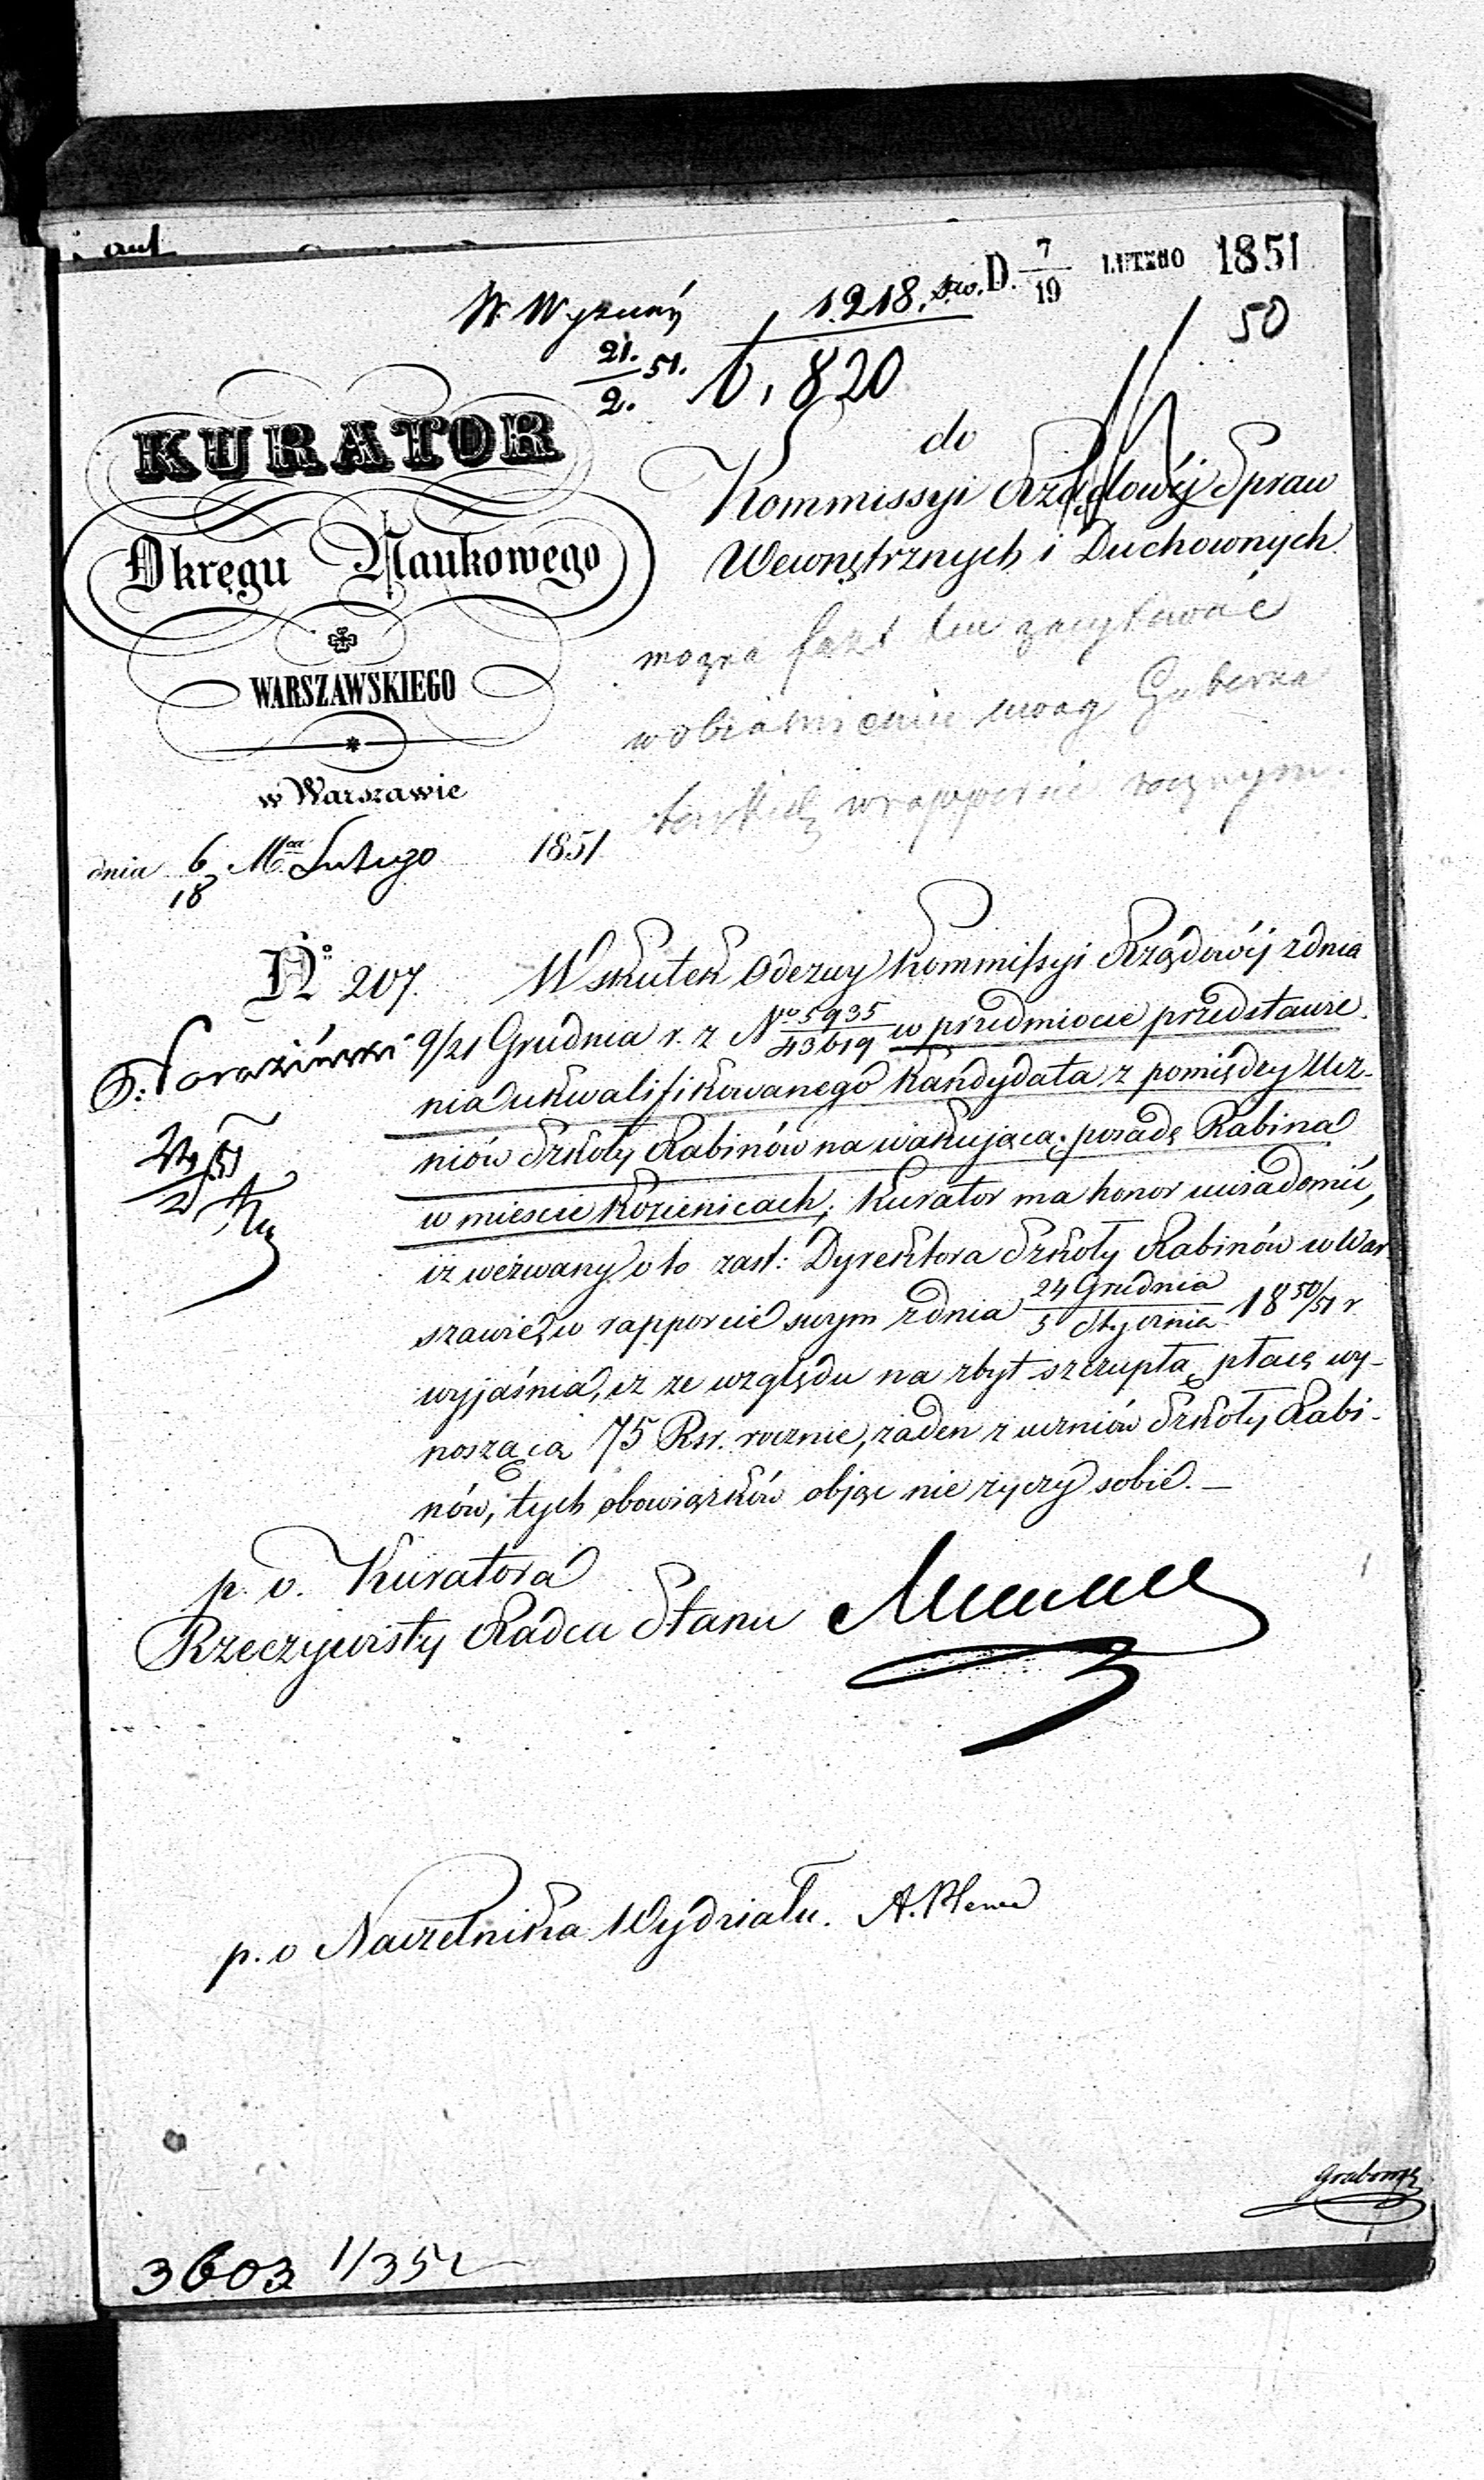 D. 7/19 LUTEGO 1851
1218.
50
21./2. 51.
820
KURATOR
Okręgu Naukowego
WARSZAWSKIEGO
w Warszawie
dnia 6/18 Mca Lutego 1851
do
Kommissyi Rządowéj Spraw
Wewnętrznych i Duchownych
można fakt ten zacytować
w obiaśnienie uwag Guberna
torskich w rapporcie rocznym.
No 207.
W skutek Odezwy Kommissyi Rządowéj z dnia
9/21 Grudnia r. z. No 5935/43619 w przedmiocie przedstawie
nia ukwalifikowanego Kandydata z pomiędzy Ucz-
niów Szkoły Rabinów na wakującą posadę Rabina
w mieście Kozienicach; Kurator ma honor uwiadomić,
iż wezwany o to zast: Dyrektora Szkoły Rabinów w War
szawie, w rapporcie swym z dnia 24 Grudnia/5 Stycznia 18 50/51 r
wyjaśnia, iż ze względu na zbyt szczupłą płacę wy-
noszącą 75 Rsr. rocznie, żaden z uczniów Szkoły Rabi-
nów, tych obowiązków objąć nie życzy sobie. —
p. o. Kuratora
Rzeczywisty Radca Stanu
p. o Naczelnika Wydziału. A.
3603 1/352